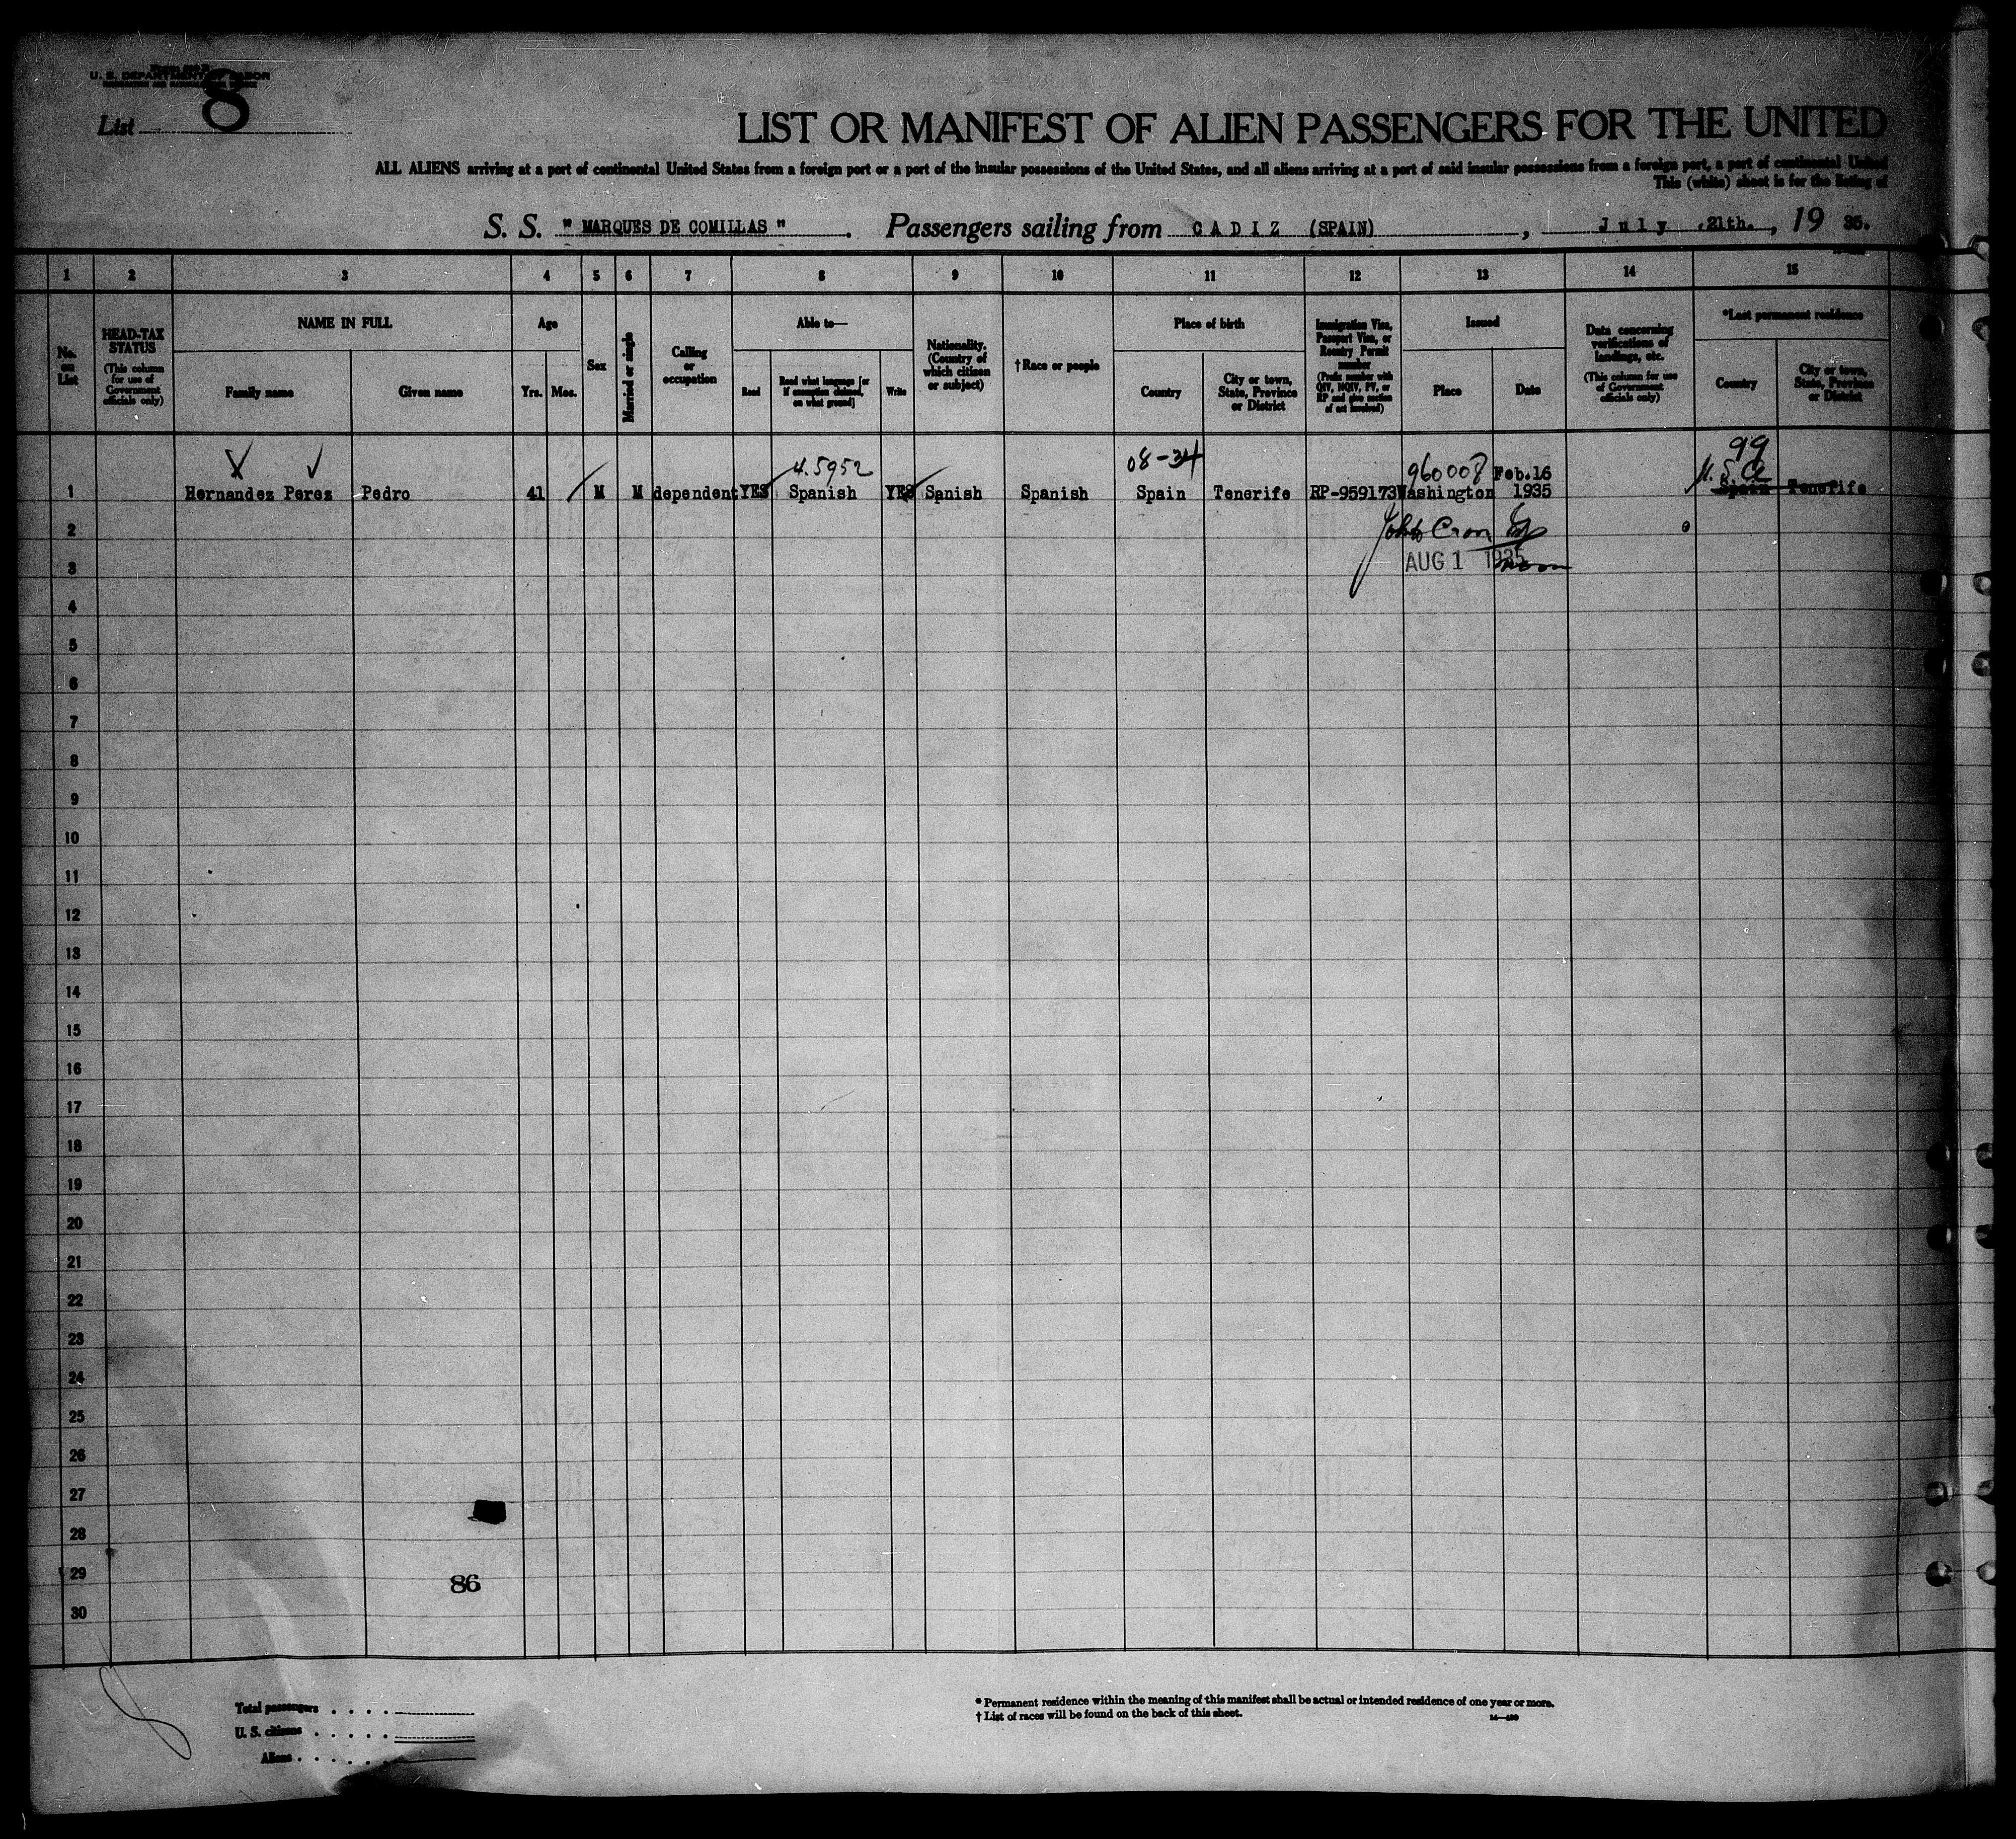 U. S. DEPARTMENT OF LABOR
List 8
LIST OR MANIFEST OF ALIEN PASSENGERS FOR THE UNITED
ALL ALIENS arriving at a port of continental United States from a foreign port or a port of the insular possessions of the United States, and all aliens arriving at a port of said insular possessions from a foreign port, a port of continental United
This (white) sheet is for the listing of
S. S. " MARQUES DE COMILLAS " . Passengers sailing from CADIZ (SPAIN) , July ,21th. , 19 35.
1 2 3 4 5 6 7 8 9 10 11 12 13 14 15
No. on List
HEAD-TAX STATUS
(This column for use of Government officials only)
NAME IN FULL
Family name
Given name
Age
Yrs.
Mos.
Sex
Married or single
Calling or occupation
Able to—
Read
Read what language [or if exemption claimed, on what ground]
Write
Nationality. (Country of which citizen or subject)
†Race or people
Place of birth
Country
City or town, State, Province or District
Immigration Visa, Passport Visa, or Reentry Permit number
(Prefix number with QIV, NQIV, PV, or RP and give section of act involved)
Issued
Place
Date
Data concerning verifications of landings, etc.
(This column for use of Government officials only)
*Last permanent residence
Country
City or town, State, Province or District
4.5952
08-34
960008
99
U. S. A
1 Hernandez Perez Pedro 41 M M dependent YES Spanish YES Sanish Spanish Spain Tenerife RP-959173 Washington Feb.16 1935 Spain Tenerife
2
AUG 1 1935
3
4
5
6
7
8
9
10
11
12
13
14
15
16
17
18
19
20
21
22
23
24
25
26
27
28
29
86
30
Total passengers
U. S. citizens
Aliens
* Permanent residence within the meaning of this manifest shall be actual or intended residence of one year or more.
† List of races will be found on the back of this sheet.